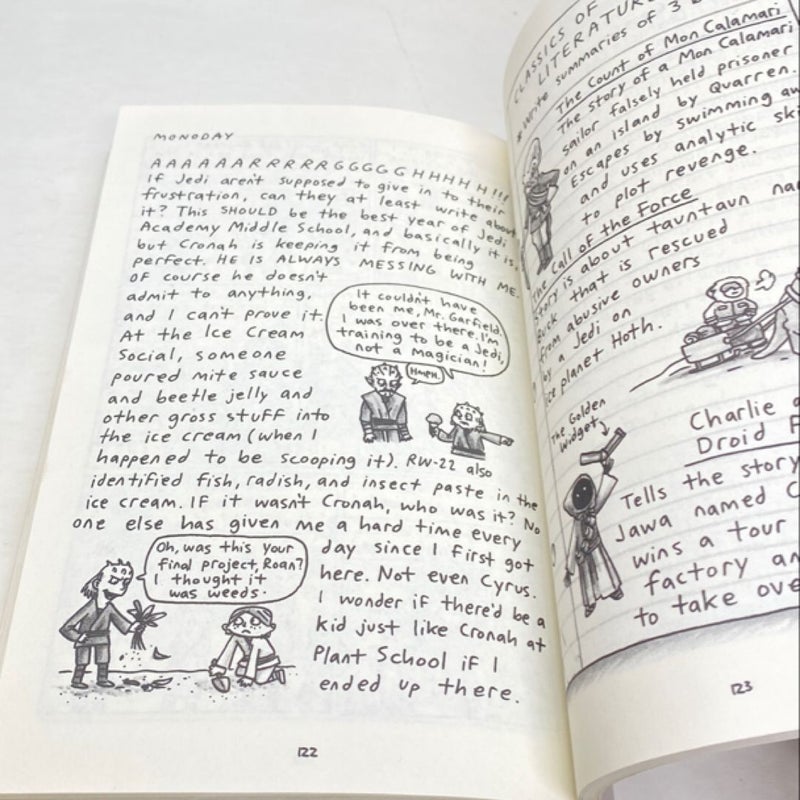 MONODAY
AAAAAARRRRRGGGGGHHHHH!!!
If Jedi aren't supposed to give in to their
frustration, can they at least write about
it? This SHOULD be the best year of Jedi
Academy Middle School, and basically it is,
but Cronah is keeping it from being
perfect. HE IS ALWAYS MESSING WITH ME.
Of course he doesn't
admit to anything,
and I can't prove it.
At the Ice Cream
Social, someone
poured mite sauce
and beetle jelly and
other gross stuff into
the ice cream (when I
happened to be scooping it). RW-22 also
identified fish, radish, and insect paste in the
ice cream. If it wasn't Cronah, who was it? No
one else has given me a hard time every
day since I first got
here. Not even Cyrus.
I wonder if there'd be a
kid just like Cronah at
Plant School if I
ended up there.
It couldn't have
been me, Mr. Garfield.
I was over there. I'm
training to be a Jedi,
not a magician!
Hmph.
Oh, was this your
final project, Roan?
I thought it
was weeds.
122
CLASSICS OF
LITERATURE
* Write summaries of 3
The Count of Mon Calamari
The story of a Mon Calamari
sailor falsely held prisoner
on an island by Quarren.
Escapes by swimming
and uses analytic
to plot revenge.
The Call of the Force
Story is about tauntaun
Buck that is rescued
from abusive owners
by a Jedi on
ice planet Hoth.
The Golden
Widget
Charlie
Droid
Tells the story
Jawa named
wins a tour
factory
to take
123